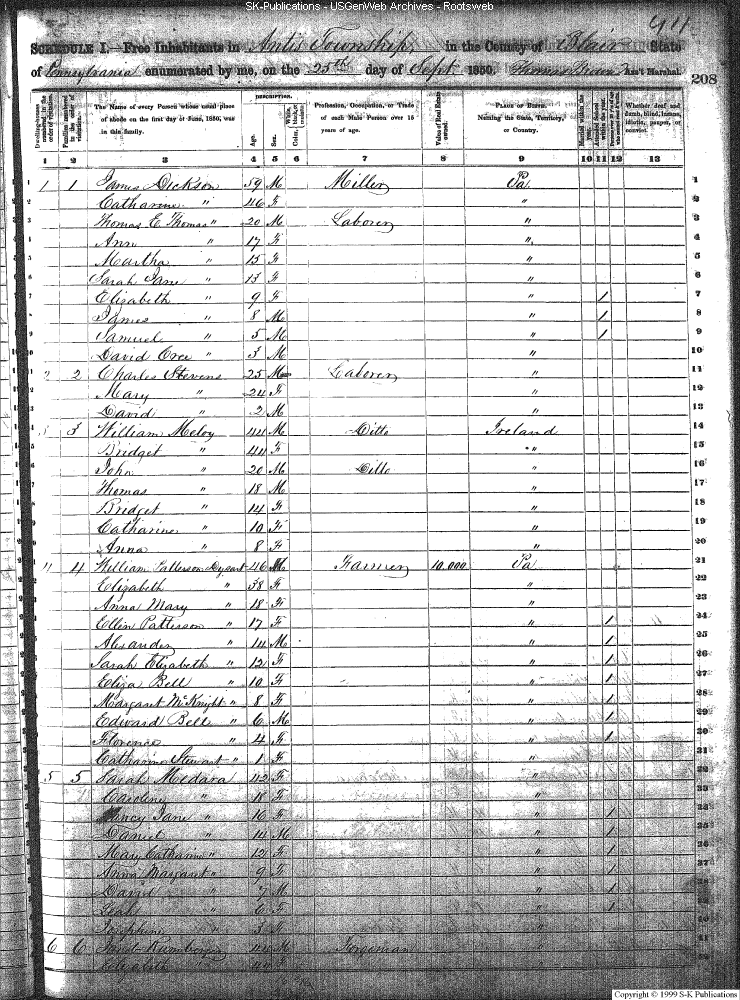 SK-Publications - USGenWeb Archives - Rootsweb
SCHEDULE I.—Free Inhabitants in Antis Township, in the County of Blair State
of Pennsylvania enumerated by me, on the 25th day of Sept 1850. Ass't Marshal. 208
DESCRIPTION.
Dwelling-houses numbered in the order of visitation. Families numbered in the order of visitation. The Name of every Person whose usual place of abode on the first day of June, 1850, was in this family. Age. Sex. White, black, or mulatto. Color, Profession, Occupation, or Trade of each Male Person over 15 years of age. Value of Real Estate owned. PLACE OF BIRTH. Naming the State, Territory, or Country. Married within the year. Attended School within the year. Whether deaf and dumb, blind, insane, idiotic, pauper, or convict.
1 2 3 4 5 6 7 8 9 10 11 12 13
1 1 James Dickson 59 M Miller Pa 1
Catharine " 46 F " 2
Thomas E. Thomas " 20 M Laborer " 3
Ann " 17 F " 4
Martha " 15 F " 5
Sarah Jane " 13 F " 6
Elizabeth " 9 F " / 7
James " 8 M " / 8
Samuel " 5 M " / 9
David Oree " 3 M " 10
2 2 Charles Stevens 25 M Laborer " 11
Mary " 24 F " 12
David " 2 M " 13
3 3 William Meloy 44 M Ditto Ireland 14
Bridget " 44 F " 15
John " 20 M Ditto " 16
Thomas " 18 M " 17
Bridget " 14 F " 18
Catharine " 10 F " 19
Anna " 8 F " 20
4 4 William Patterson Dysart 46 M Farmer 10.000 Pa 21
Elizabeth " 38 F " 22
Anna Mary " 18 F " 23
Ellen Patterson " 17 F " / 24
Alexander " 14 M " / 25
Sarah Elizabeth " 12 F " / 26
Eliza Bell " 10 F " / 27
Margaret McKnight " 8 F " / 28
Edward Bell " 6 M " / 29
Florence " 4 F " / 30
Catharine Stewart " 1 F " 31
5 5 Sarah Medara 42 F " 32
Caroline " 18 F " 33
Nancy Jane " 16 F " / 34
Daniel " 14 M " / 35
Mary Catharine " 12 F " / 36
Anna Margaret " 9 F " / 37
David " 7 M " / 38
Leah " 6 F " / 39
Josephine " 3 F " 40
6 6 44 M Forgeman " 41
Elizabeth 44 F " 42
Copyright © 1999 S-K Publications